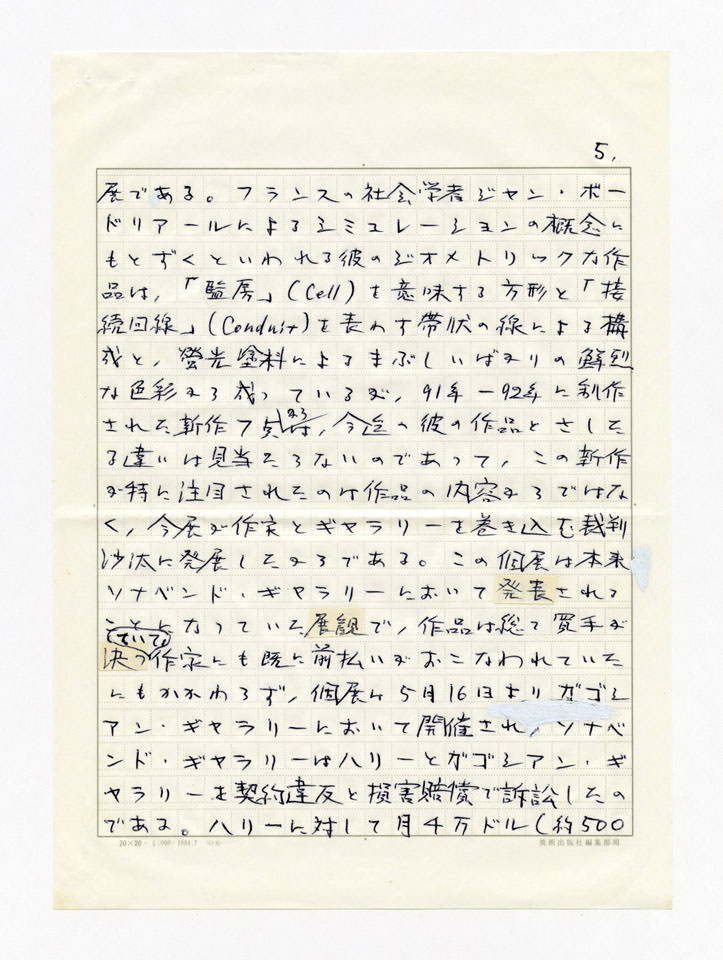 5.
展である。フランスの社会学者ジャン・ボー
ドリアールによるシミュレーションの概念に
もとずくといわれる彼のジオメトリックな作
品は、「監房」(Cell)を意味する方形と「接
続回線」(Conduit)を表わす帯状の線による構
成と、螢光塗料によるまぶしいばかりの鮮烈
な色彩から成っているが、91年−92年に制作
された新作7点からは、今迄の彼の作品とさした
る違いは見当たらないのであって、この新作
が特に注目されたのは作品の内容からではな
く、今展が作家とギャラリーを巻き込む裁判
沙汰に発展したからである。この個展は本来
ソナベンド・ギャラリーにおいて発表される
ことになっていた展観で、作品は総て買手が
決っていて作家にも既に前払いがおこなわれていた
にもかかわらず、個展は5月16日よりガゴシ
アン・ギャラリーにおいて開催され、ソナベ
ンド・ギャラリーはハリーとガゴシアン・ギ
ャラリーを契約違反と損害賠償で訴訟したの
である。ハリーに対して月4万ドル(約500
20×20 1984.7 美術出版社編集部用